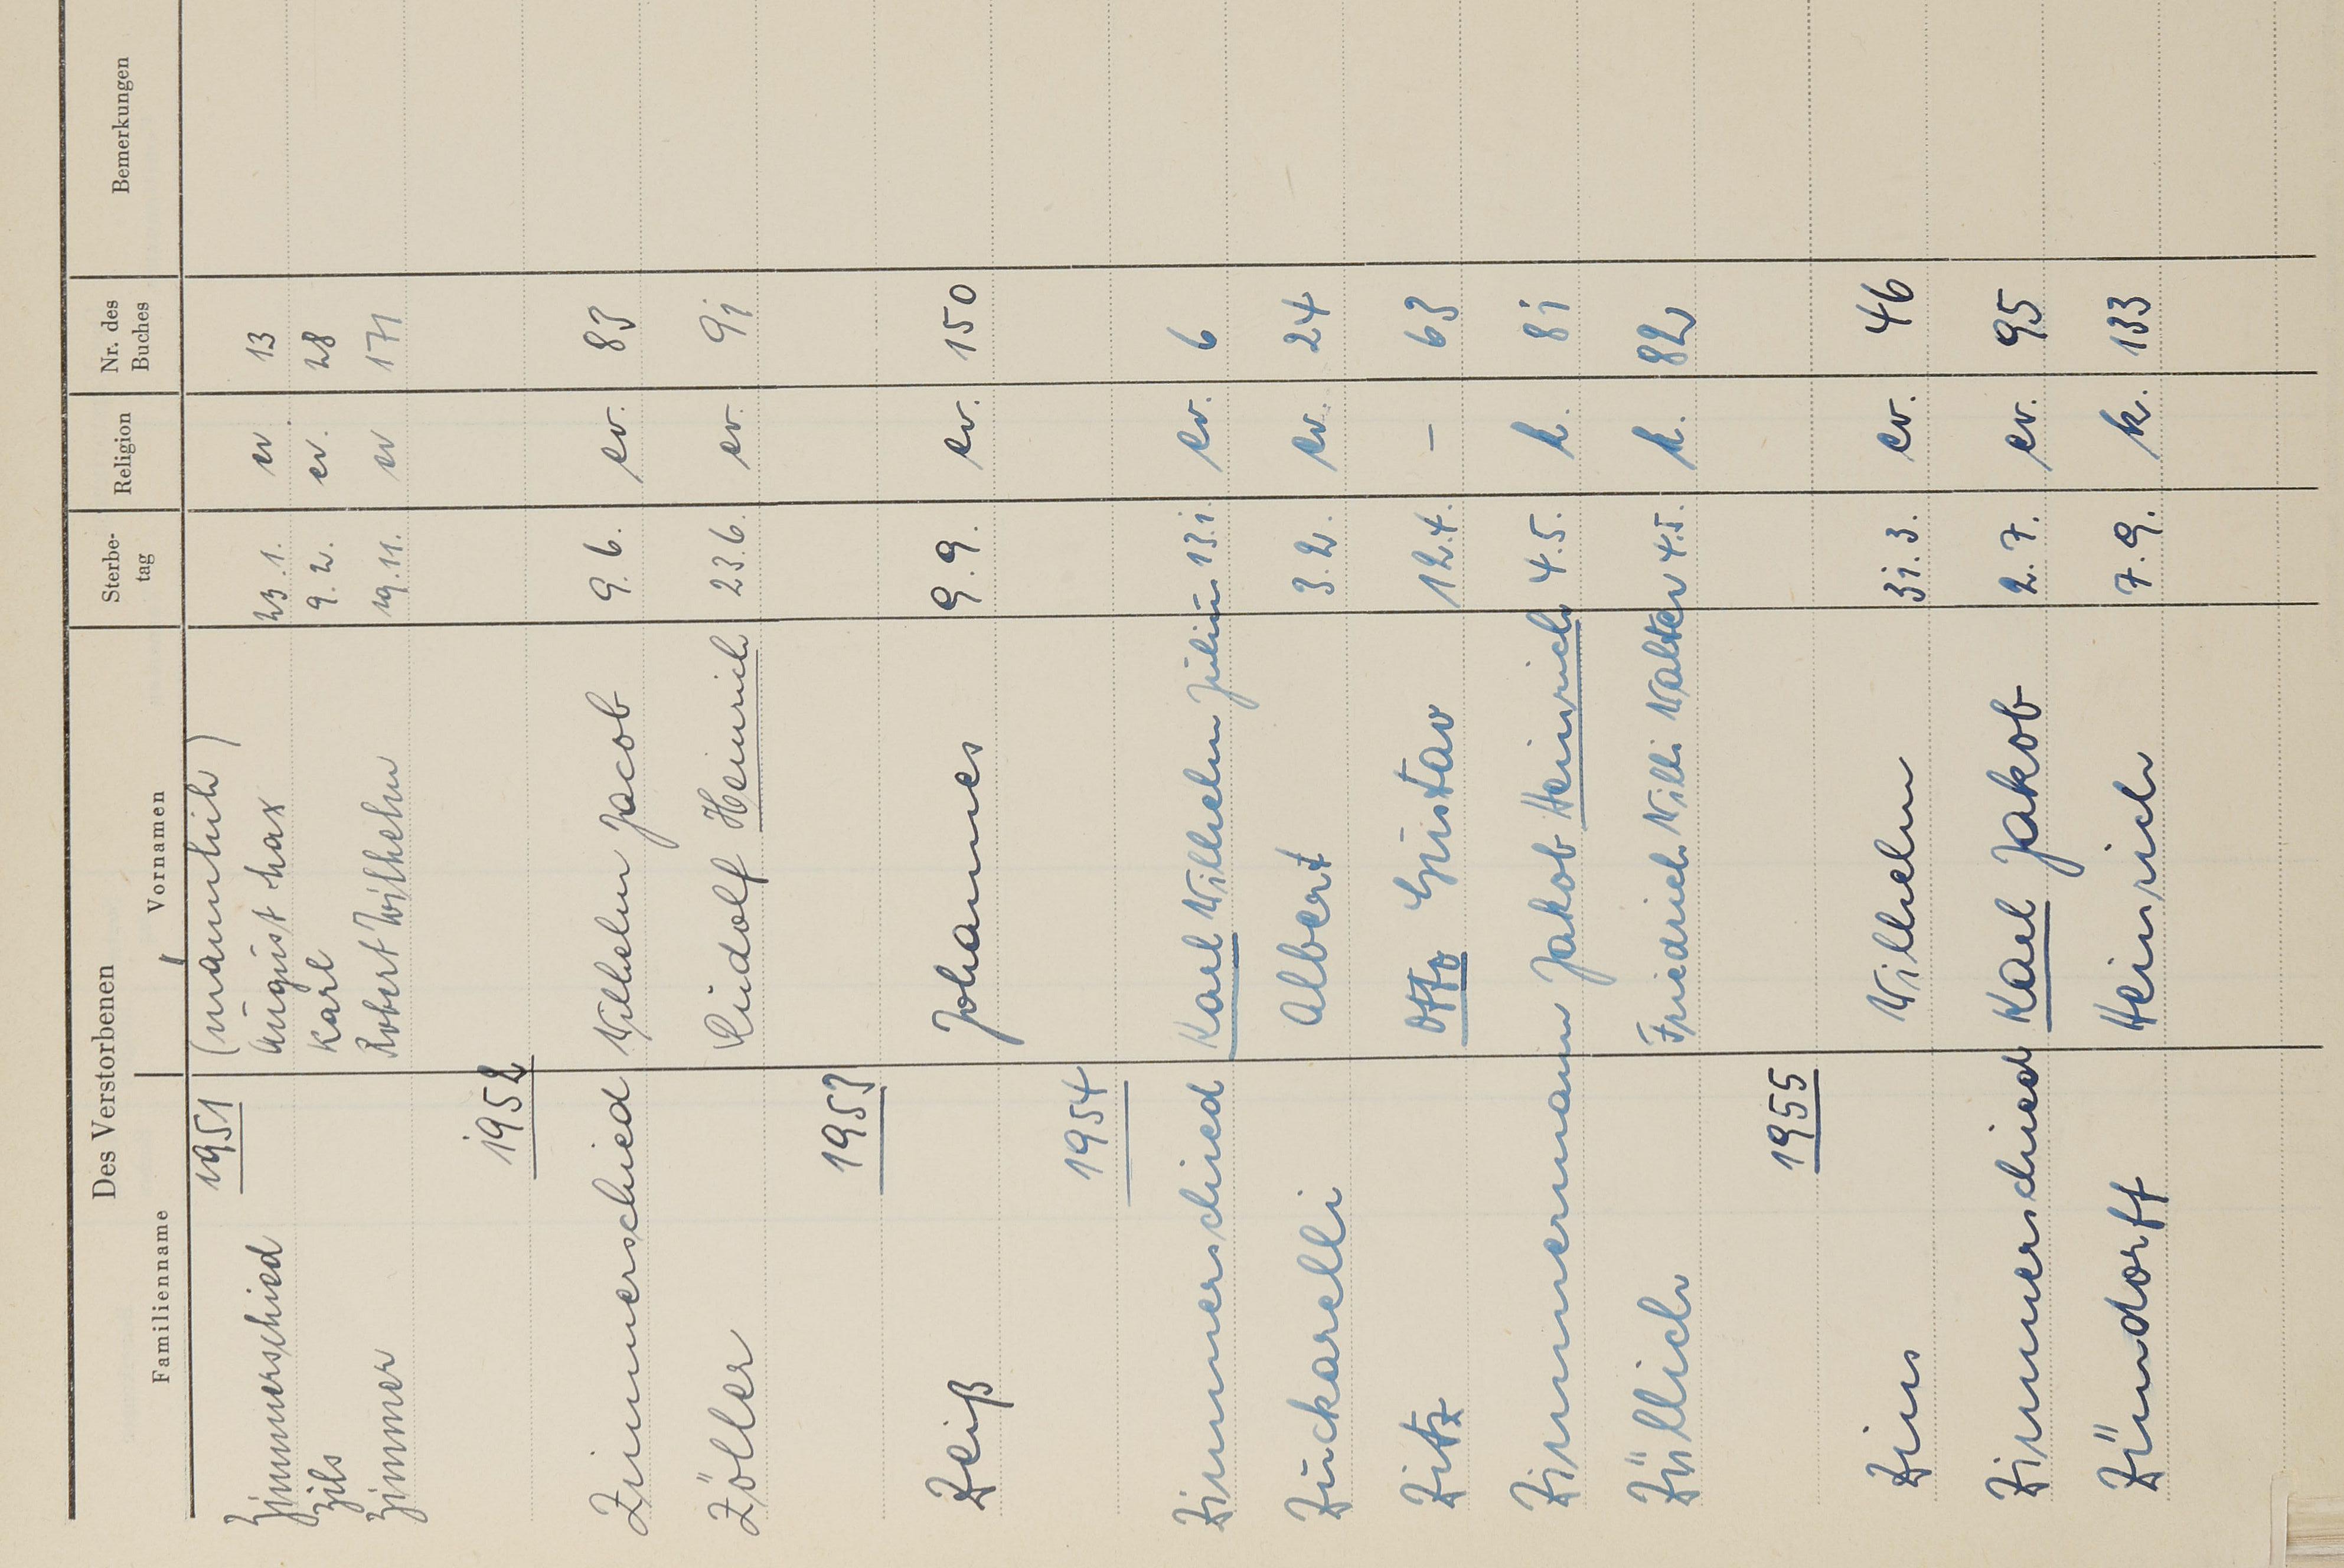 Des Verstorbenen Sterbe-tag Religion Nr. des Buches Bemerkungen
Familienname Vornamen
1951 (männlich)
Zimmerschied August Max 23.1. ev. 13
Zils Karl 9.2. ev. 28
Zimmer Robert Wilhelm 19.11. ev 171
1952
Zimmerschied Wilhelm Jacob 9.6. ev. 83
Zöller Rudolf Heinrich 23.6. ev. 91
1953
Zeiß Johannes 9.9. ev. 150
1954
Zimmerschied Karl Wilhelm Julius 13.1. ev. 6
Zuckarelli Albert 3.2. ev. 24
Zitz Otto Gustav 12.4. – 63
Zimmermann Jakob Heinrich 4.5. k. 81
Züllich Friedrich Willi Walter 4.5. k. 82
1955
Zins Wilhelm 31.3. ev. 46
Zimmerschied Karl Jakob 2.7. ev. 95
Zündorff Heinrich 7.9. k. 133